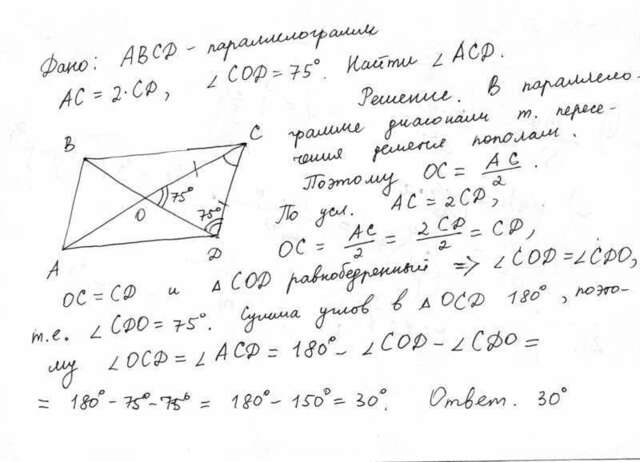 Дано: ABCD - параллелограмм
AC = 2·CD, ∠COD = 75°. Найти ∠ACD.
Решение. В параллело-
грамме диагонали т. пересе-
чения делятся пополам.
Поэтому OC = AC/2.
По усл. AC = 2CD,
OC = AC/2 = 2CD/2 = CD,
B
C
O
75°
75°
A
D
OC = CD и △COD равнобедренный => ∠COD = ∠CDO,
т.е. ∠CDO = 75°. Сумма углов в △OCD 180°, поэто-
му ∠OCD = ∠ACD = 180° - ∠COD - ∠CDO =
= 180° - 75° - 75° = 180° - 150° = 30°. Ответ. 30°